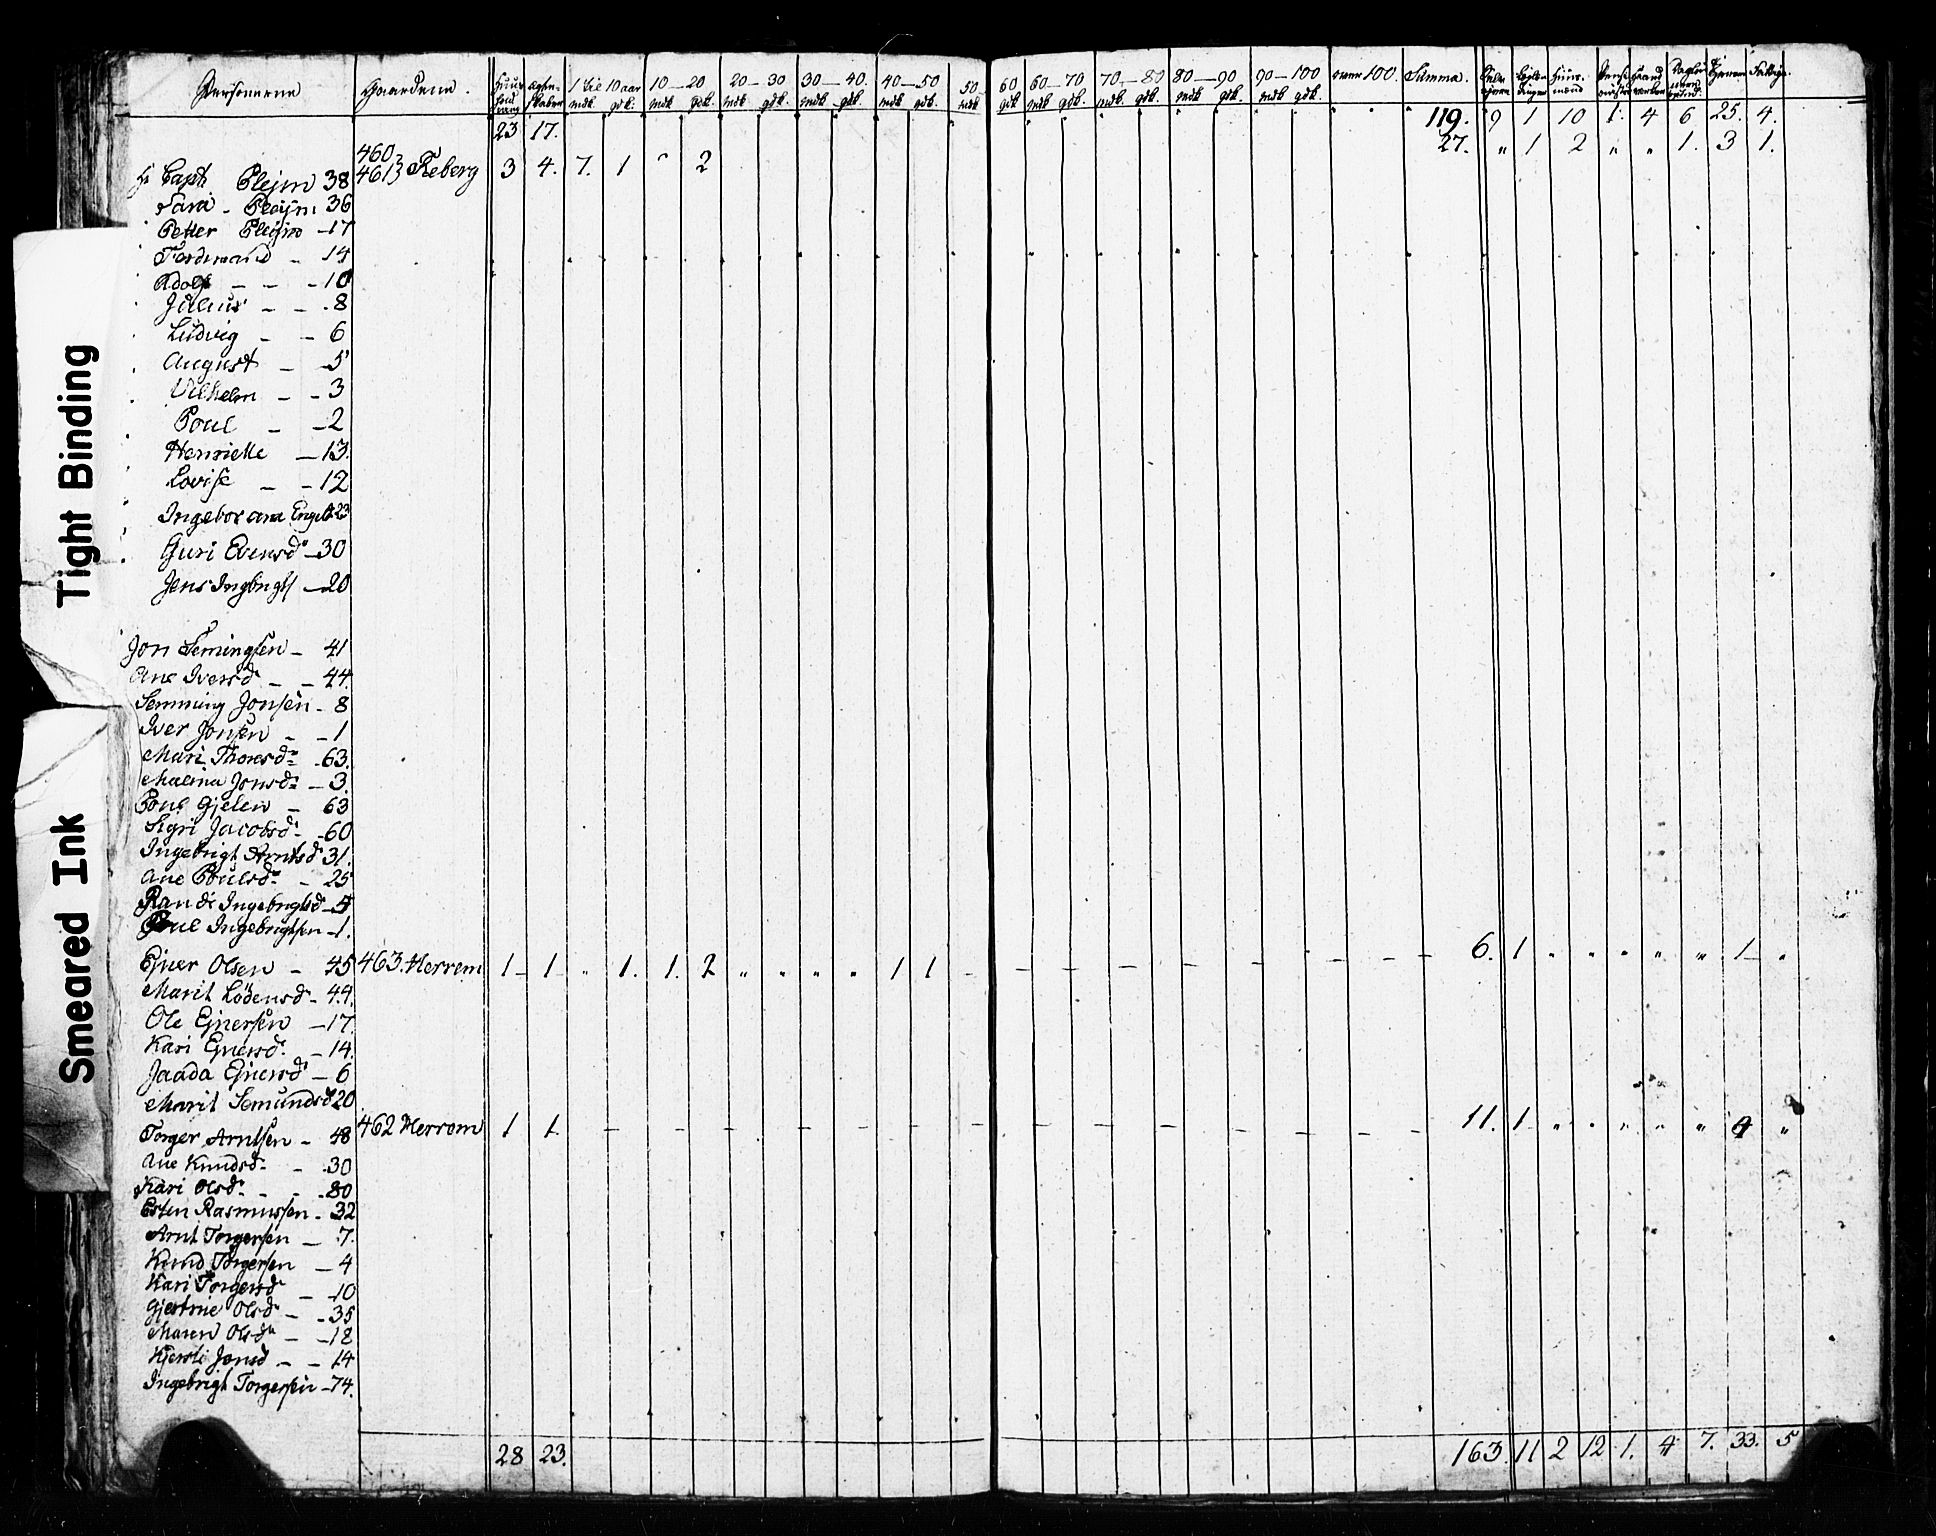 Personerne Gaardene. 1 til 10 aar 10 — 20 20 — 30 30 — 40. 40 — 50 50 — 60 60 — 70 70 — 80 80 — 90 90 — 100 over 100. Summa.
mdk. gdk. mdk gdk. mdk gdk. mdk gdk. mdk gdk. mdk gdk mdk gdk. mdk. gdk. mdk gdk. mdk gdk.
23 17. 119. 9 1 10 1. 4 6 25. 4.
460 27. „ 1 2 „ „ 1. 3 1.
Hr Capt. Plejm 38 461 Reberg 3 4. 7. 1 2
Sara - Plejm 36
Petter Plejm - 17
Ferdinand - 14
Adolf - - - 10
Julius - - . 8
Ludvig - - 6
August - - 5
Vilhelm - - 3
Poul - - 2
Henriette — 13.
Lovise - - 12
Ingebor ana 23
Guri Evensd - 30
Jens — 20
Jon Semingsen - 41
Ane Iversd - - 44.
Semming Jonsen - 8
Iver Jonsen - - 1
Mari Thoresd - 63.
Malina Jonsd - 3.
Poul Gjelen - 63
Sigri Jacobsd - 60
Ingebrigt Arntsd 31.
Ane Poulsd - 25
Randi Ingebrigtsd - 4
Poul Ingebrigtsen - 1.
Ejner Olsen - 45 463. Herrem 1 - 1 - „ 1. 1. 2 „ „ „ „ 1 1 - - - - - - - - - - - - 6. 1 „ „ „ „ „ 1 - „
Marit Lodensd - 44.
Ole Ejnersen — 17.
Kari Ejnersd. — 14.
Jaada Ejnersd — 6
Marit Semundsd 20
Torger Arntsen - 48 462 Herrem 1 1 - - - - - - - - - - - - - - - - - - - - - - 11. 1 „ „ „ „ „ 4 „
Ane Knudsd - - 30
Kari Olsd. - - 80
Esten Rasmussen - 32
Arnt Torgersen — 7.
Knud Torgersen — 4
Kari Torgersd — 10
Gjertrue Olsd — 35
Maren Olsd — 18
Kjersti Jonsd - - 14
Ingebrigt Torgersen - 74.
28 23. 163. 11 2 12 1. 4 7. 33. 5
Tight Binding
Smeared Ink